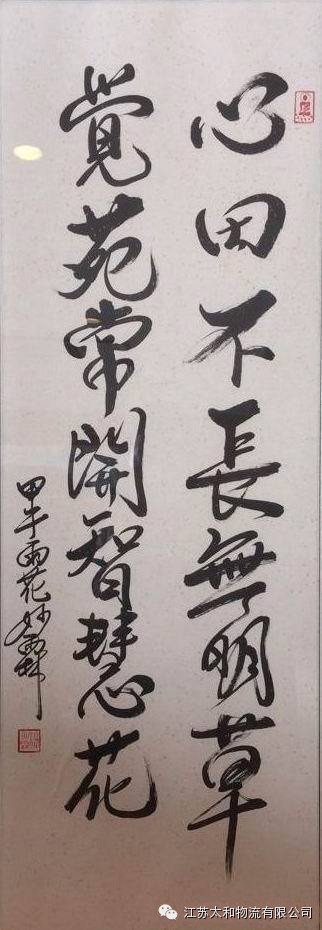 心田不長無明草
覺苑常開智慧花
甲午雨花妙霖
江苏太和物流有限公司